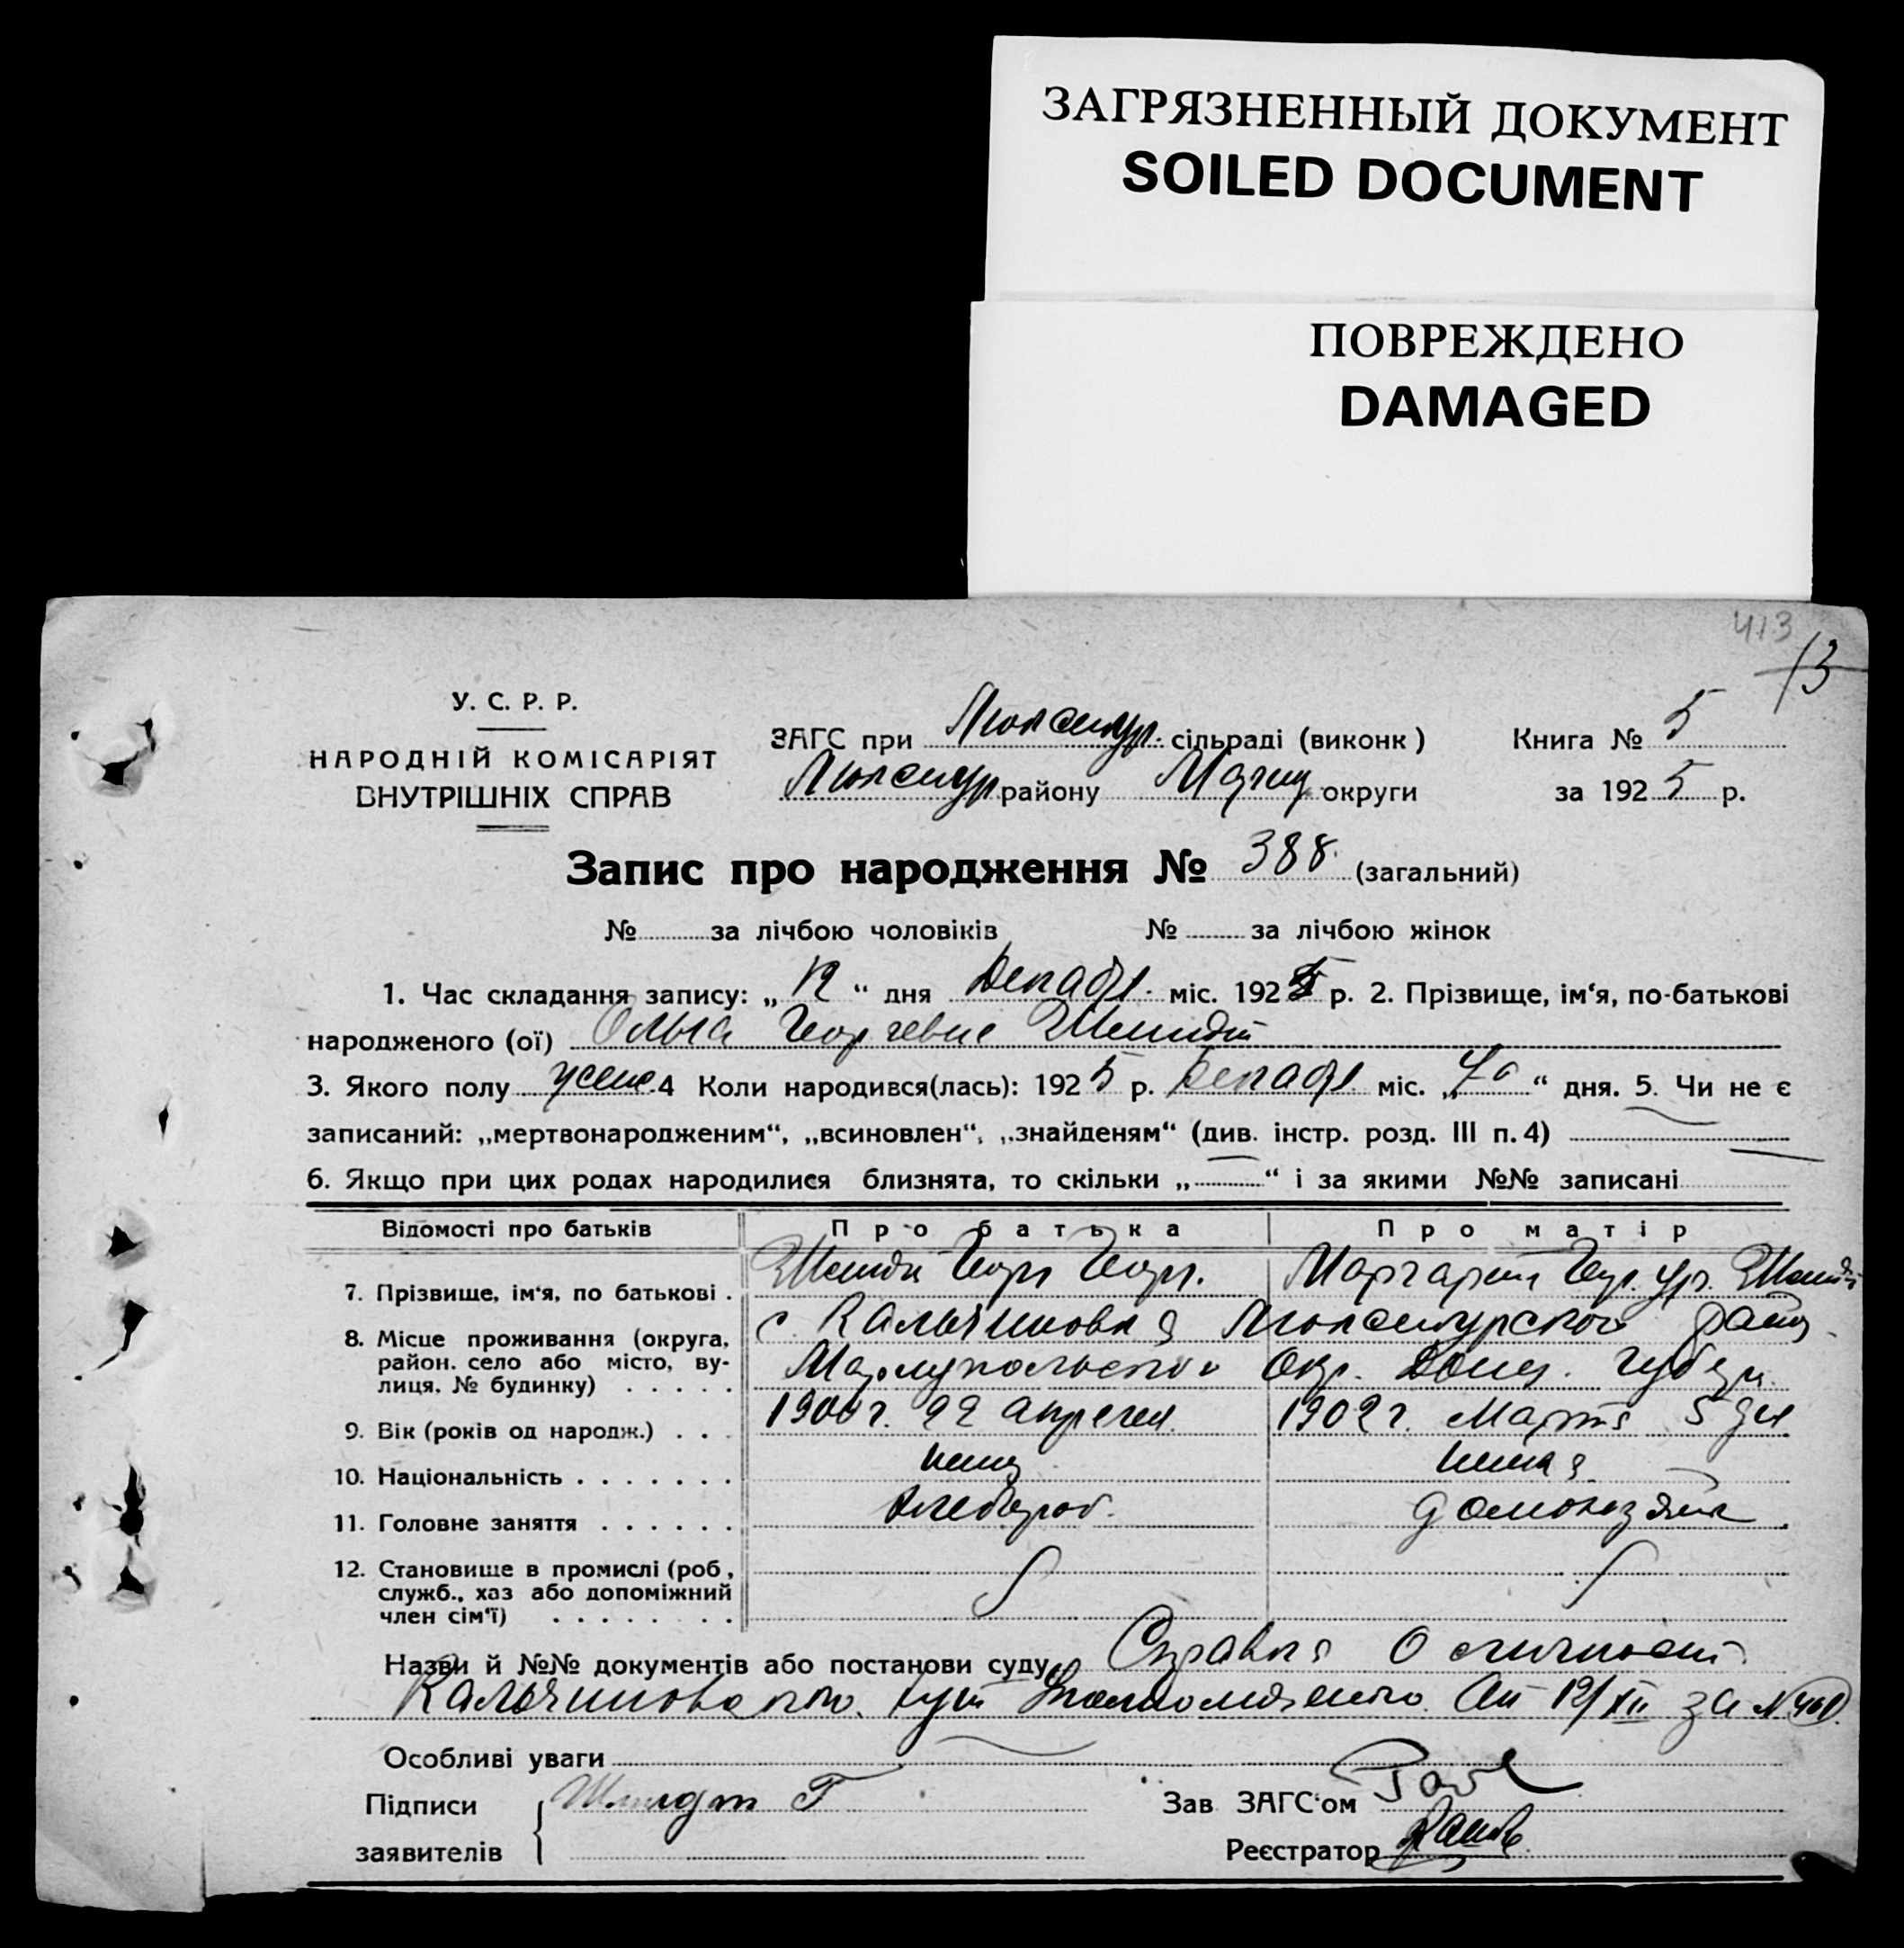 ЗАГРЯЗНЕННЫЙ ДОКУМЕНТ
SOILED DOCUMENT
ПОВРЕЖДЕНО
DAMAGED
413
13
У. С. Р. Р.
НАРОДНІЙ КОМІСАРІЯТ
ВНУТРІШНІХ СПРАВ
ЗАГС при Люксемур. сільраді (виконк) Книга № 5
Люксемур району Мариу округи за 1925 р.
Запис про народження № 388 (загальний)
№ за лічбою чоловіків № за лічбою жінок
1. Час складання запису: „ 12 “ дня Декабр. міс. 1925 р. 2. Прізвище, ім‘я, по-батькові
народженого (ої) Ольга Георгевне Шмидт
3. Якого полу 4 Коли народився(лась): 1925 р. Декабр. міс. „ “ дня. 5. Чи не є
записаний: „мертвонародженим“, „всиновлен“, „знайденям“ (див. інстр. розд. III п. 4)
6. Якщо при цих родах народилися близнята, то скільки „ “ і за якими №№ записані
Відомості про батьків Про батька Про матір
7. Прізвище, ім‘я, по батькові . Шмидт Георг Георг. Маргарита Геор. ур. Шмидт
8. Місце проживання (округа, район. село або місто, вулиця, № будинку) . . . . . с. Кальчиновка Люксемурского район
Мариупольской Окр. Донец. губерн.
9. Вік (років од народж.) . . . 1900 г. 22 апреля 1902 г. Марта 5 дня
10. Національність . . . . . . . немец немка
11. Головне заняття . . . . . . Хлебороб. домохозяйк
12. Становище в промислі (роб, служб., хаз або допоміжний член сім‘ї) . . . . . . . .
Назви й №№ документів або постанови суду Справка О личност
Кальчиновского. От 12/XII за № 461
Особливі уваги
Підписи
заявителів
Шмидт Г
Зав ЗАГС‘ом
Реєстратор